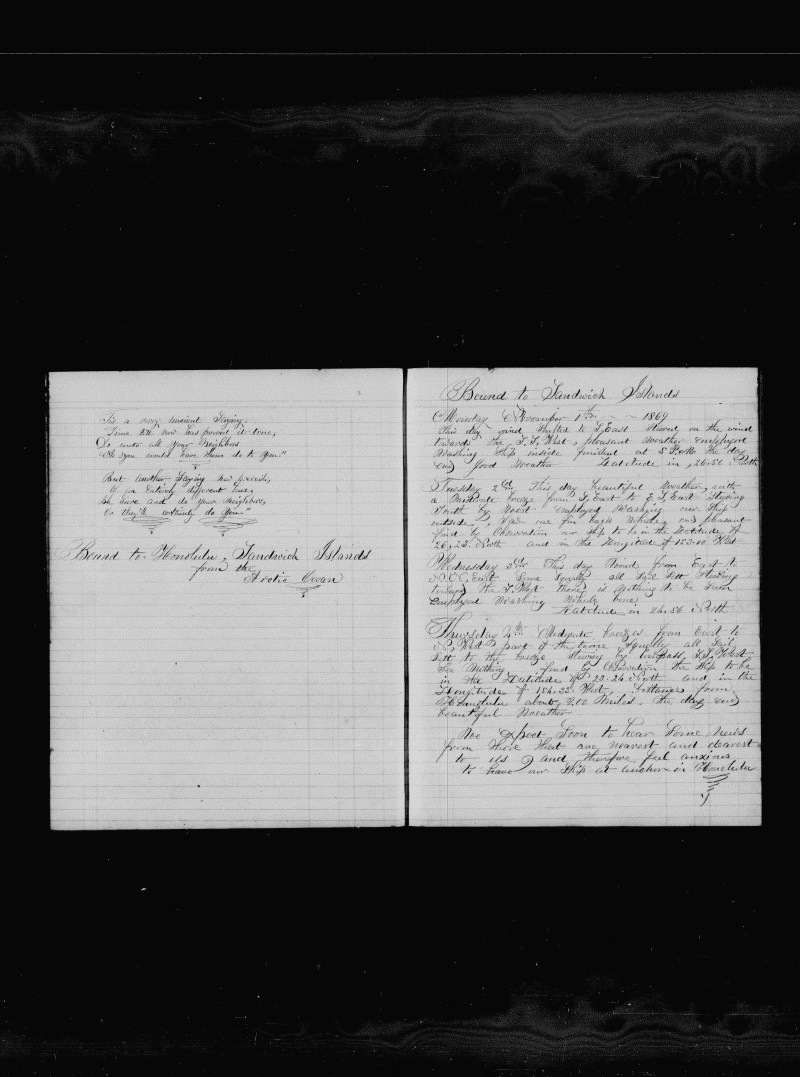 Tis a very ancient Saying.
Time till now has proved it true,
Do unto all your Neighbors
As you would have them do to You"
But another Saying now prevails,
Of an Entirely different hue;
Be sure and do your Neighbors,
Or they'll certainly do You"
Bound to Honolulu, Sandwich Islands
from the
Arctic Ocean
Bound to Sandwich Islands
Monday November 1st 1869
This day wind Shifted to S.East Stewed on the wind
towards the S.S.West, pleasant weather employed
Washing Ship inside finished at 5 P.M. the day
End good Weather Latitude in 26.50 North
Tuesday 2nd This day beautiful Weather with
a Moderate breeze from S.East to E.S.East Steering
South by West Employed Washing our Ship
outside, one fin back Whale, End pleasant
find by Observation our ship to be in the Latitude of
26.23. North and in the Longitude of 153.10 West
Wednesday 3rd This day Round from East to
East Some Squally all Sail Sett Heading
towards the S.West there is Nothing to be Seen
Employed Washing Whale bone
Latitude in 24.56 North
Thursday 4th Moderate breezes from East to
West part of the time Squally all Sail
Sett to the breeze Steering by Compass, S.S.West
See Nothing find by Observation the Ship to be
in the Latitude of 23.24 North and in the
Longitude of 154.32 West. Distance from
Honolulu about 200 Miles. The day End
beautiful Weather
We Expect Soon to hear Some News
from those that are nearest and dearest
to us and therefore feel anxious
to have our Ship at anchor in Honolulu